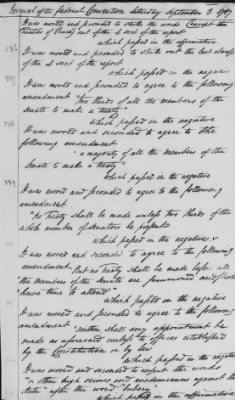 Journal of the federal Convention Saturday September 8. 1787
It was moved and seconded to strike the words (except the
treaties of Peace) out of the 4 sect of the report
which passed in the affirmative
It was moved and seconded to strike out the last clause
of the 4 sect of the report
which passed in the negative
It was moved and seconded to agree to the following
amendment "two thirds of all the members of the
Senate to make a treaty"
which passed in the negative
It was moved and seconded to agree to the
following amendment
"a majority of all the members of the
Senate to make a treaty"
which passed in the negative
It was moved and seconded to agree to the following
amendment
"No Treaty shall be made unless two thirds of the
whole number of Senators be present
which passed in the negative
It was moved and seconded to agree to the following
amendment. "But no Treaty shall be made before all
the members of the Senate are summoned and shall
have time to attend"
which passed in the negative
It was moved and seconded to agree to the following
amendment "neither shall any appointment be
made as aforesaid unless to offices established
by the Constitution or by law
which passed in the negative
It was moved and seconded to insert the words
"or other high crimes and misdemeanors against the
State" after the word "bribery"
which passed in the affirmative